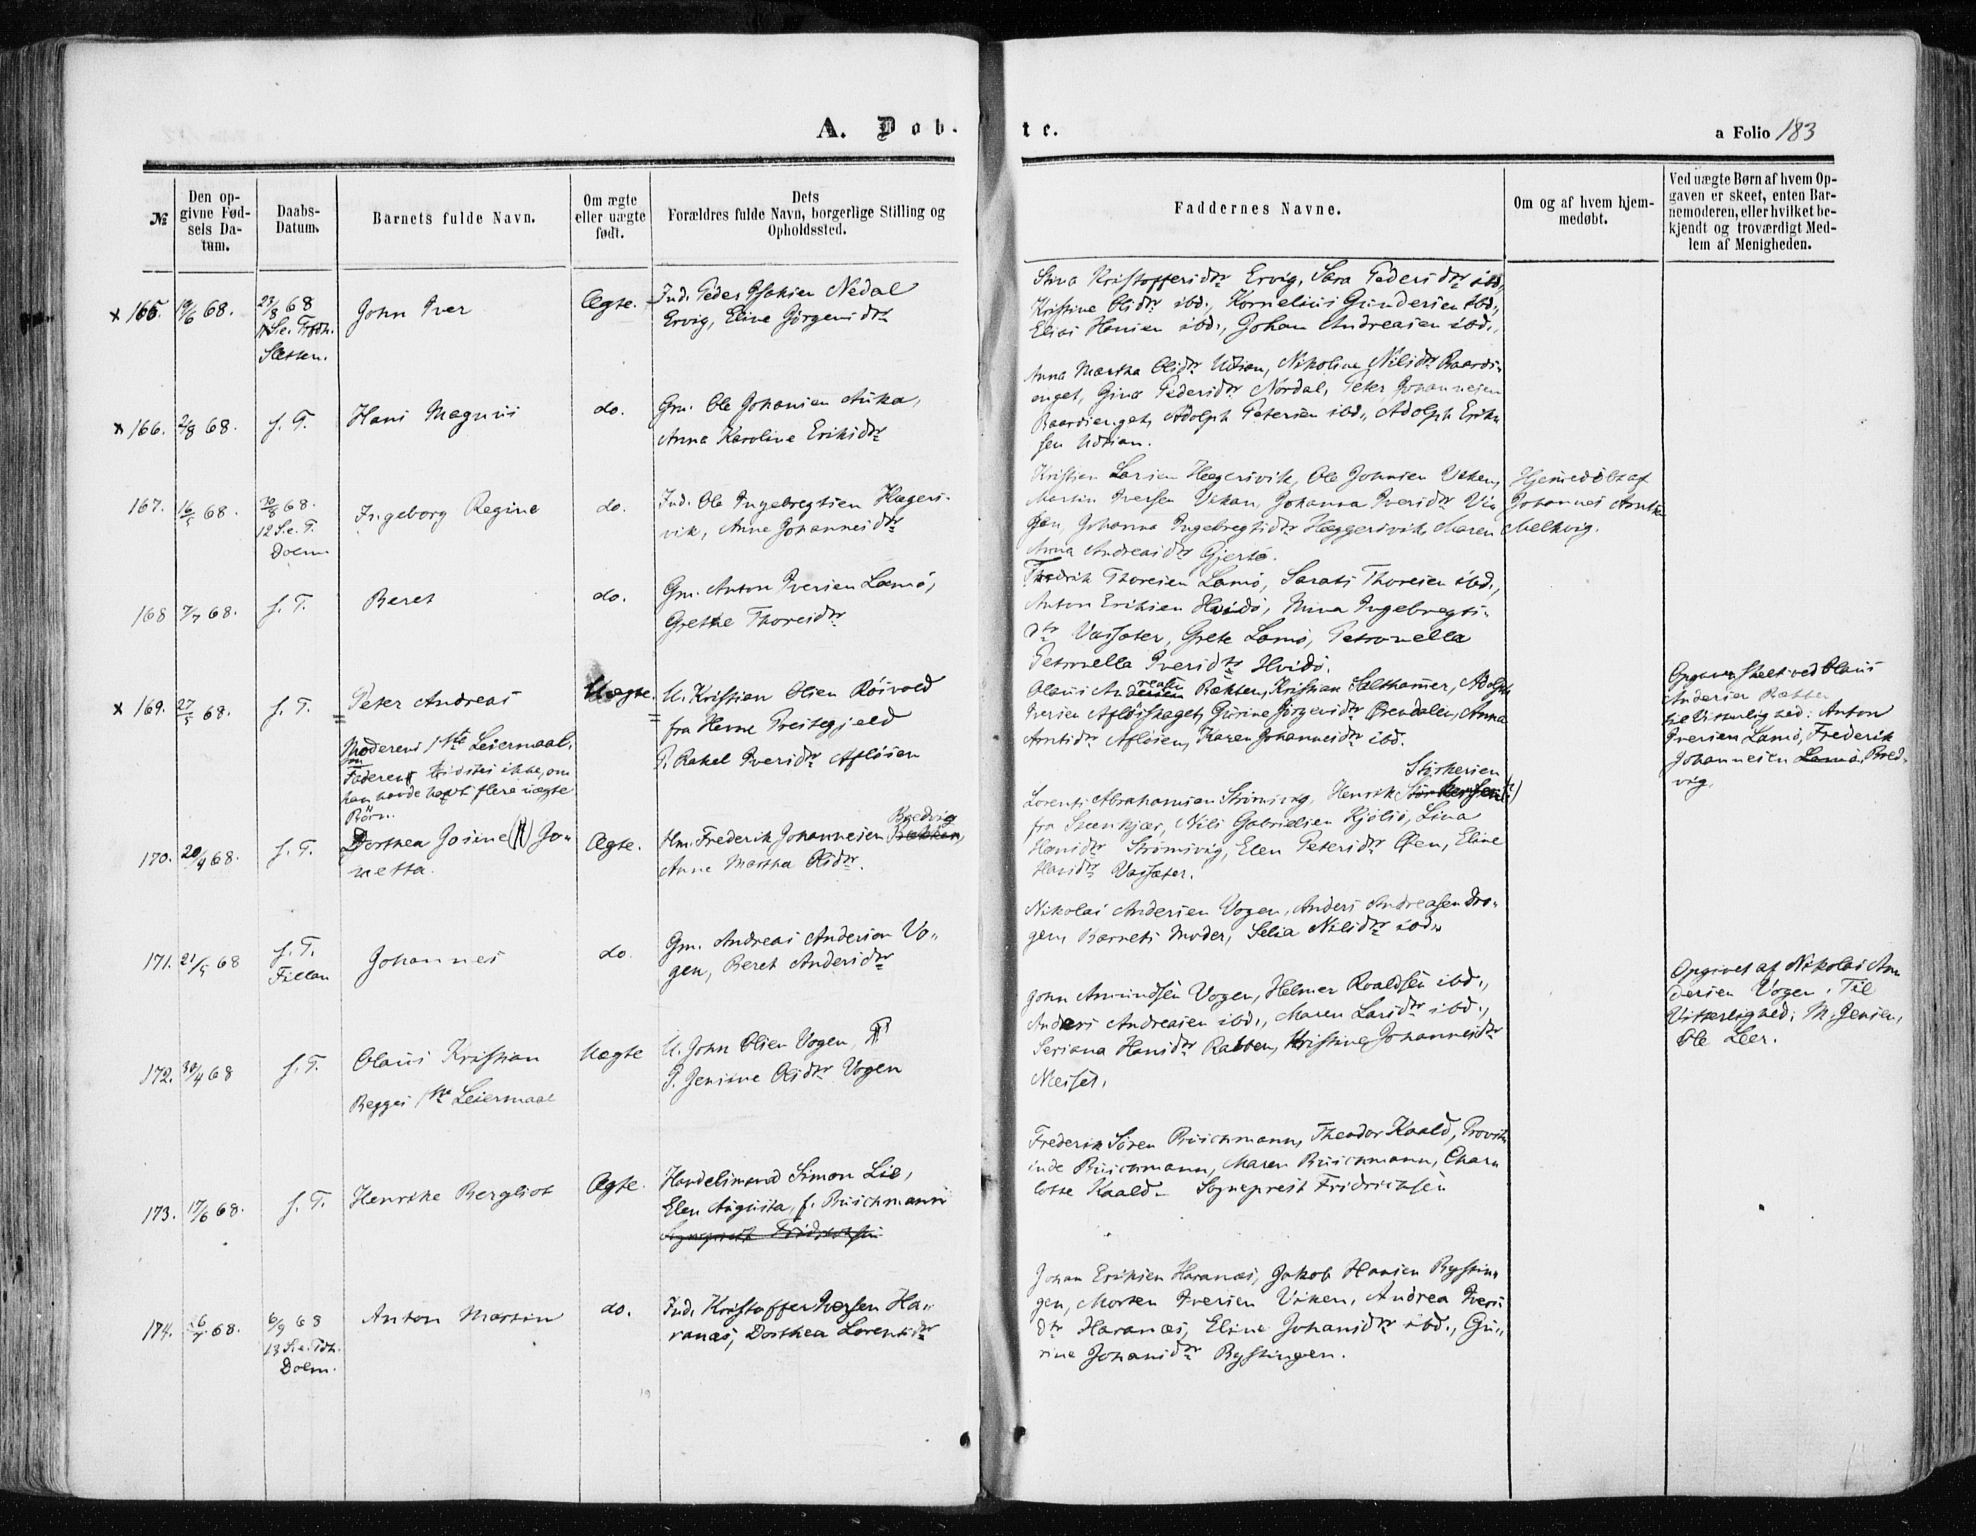 A. Døb-
te.
a Folio 183
№
Den op-
givne Fød-
sels Da-
tum.
Daabs-
Datum.
Barnets fulde Navn.
Om ægte
eller uægte
født.
Dets
Forældres fulde Navn, borgerlige Stilling og
Opholdssted.
Faddernes Navne.
Om og af hvem hjem-
medøbt.
Ved uægte Børn af hvem Op-
gaven er skeet, enten Bar-
nemoderen, eller hvilket be-
kjendt og troværdigt Med-
lem af Menigheden.
x 165. 19/6 68.
23/8 68
Sletten.
John Iver
Ægte.
Ind. Peder Isaksen Nedal
Ervig, Eline Jørgensdtr
Stina Kristoffersdtr Ervig, Sara Pedersdtr ibd.,
Kristine Olsdtr ibd., Kornelius Gundersen ibd.,
Elias Hansen ibd., Johan Andreasen ibd.,
x 166. 2/8 68.
s. T.
Hans Magnus
do.
Gm. Ole Johansen Auka,
Anna Karoline Eriksdtr
Anna Martha Olsdtr Udsan, Nikoline Nilsdtr Baards-
enget, Gina Pedersdtr Nordal, Peter Johannesen
Baardsenget, Adolph Petersen ibd., Adolph Erik-
sen Udsan.
167. 16/5 68.
30/8 68.
12 S. e. T.
Dolm
Ingeborg Regine
do.
Ind. Ole Ingebregtsen Hægers-
vik, Anne Johannesdtr
Kristen Larsen Hægersvik, Ole Johnsen Viken,
Martin Iversen Vikan, Johanna Iversdtr Vi-
ken, Johanna Ingebregtsdtr Heggersvik, Maren
Anna Andreasdtr Gjertø.
Hjemmedøbt af
Johannes Arntsen
Melkvig.
168 7/7 68.
s. T.
Beret
do.
Gm. Anton Iversen Lamø,
Grethe Thoresdtr
Fredrik Thoresen Lamø, Sarats Thoresen ibd.,
Anton Eriksen Hvidø, Mina Ingebregts-
dtr Vassæter, Grete Lamø, Petronella
Petronella Iversdtr Hvidø.
x 169. 27/5 68.
s. T.
Peter Andreas
Moderens 1ste Leiermaal,
om
Faderen vidstes ikke, om
han havde havt flere uægte
Børn.
Uægte.
U. Kristian Olsen Røsvold
fra Hevne Prestegjeld
P. Rakel Iversdtr Afløsen
Olaus Andreasen Bækken, Kristian Salthamer, Adolph
Iversen Afløshaget, Gurine Jørgensdtr Bendalen, Anna
Arntsdtr Afløsen, Karen Johannesdtr ibd.
Opgaven skeet ved Olaus
Andersen Bækken
til Vitterlighed: Anton
Iversen Lamø, Frederik
Johannesen Lamø, Bred-
vig.
170. 20/4 68.
s. T.
Dorthea Josine Jo-
netta.
Ægte.
Hm. Frederik Johannesen Bækken, Bredvig
Anne Martha Olsdtr.
Størkersen
Lorents Abrahamsen Strømsvig, Henrik Størkersen
fra Steenkjær, Nils Gabrielsen Kjølsø, Lina
Hansdtr Strømsvig, Elen Petersdtr Øien, Eline
Hansdtr Vassæter.
171. 21/5 68
s. T.
Fillan
Johannes
do.
Gm. Andreas Andersen Vo-
gen, Beret Andersdtr
Nikolai Andersen Vogen, Anders Andreasen Vo-
gen, Barnets Moder, Selia Nilsdtr ibd.
172. 30/4 68
s. T.
Olaus Kristian
Begges 1ste Leiermaal
Uægte
U. John Olsen Vogen,
P. Jensine Olsdtr Vogen
John Amundsen Vogen, Helmer Roaldsen ibd.,
Anders Andreasen ibd., Maren Larsdtr ibd.,
Seriana Hansdtr Rabben, Kristine Johannesdtr
Næsset.
Opgivet af Nikolai An-
dersen Vogen. Til
Vitterlighed: M. Jensen,
Ole Leer.
173. 17/6 68.
s. T.
Henrike Bergliot
Ægte.
Handelsmand Simon Lie,
Elen Augusta, f. Buschmann
Sogneprest Fridrichsen
Frederik Søren Buschmann, Theodor Kaald,
Buschmann, Maren Buschmann, Char-
lotte Kaald. Sogneprest Fridrichsen
174. 26/7 68.
6/9 68
13 S. e. Tdh.
Dolm.
Anton Martin
do.
Ind. Kristoffer Iversen Ha-
ranæs, Dorthea Lorentsdtr
Johan Eriksen Haranæs, Jakob Hansen Rystin-
gen, Morten Iversen Viken, Andrea Ivers-
dtr Haranæs, Eline Johansdtr ibd., Gu-
rine Johansdtr Rystingen.